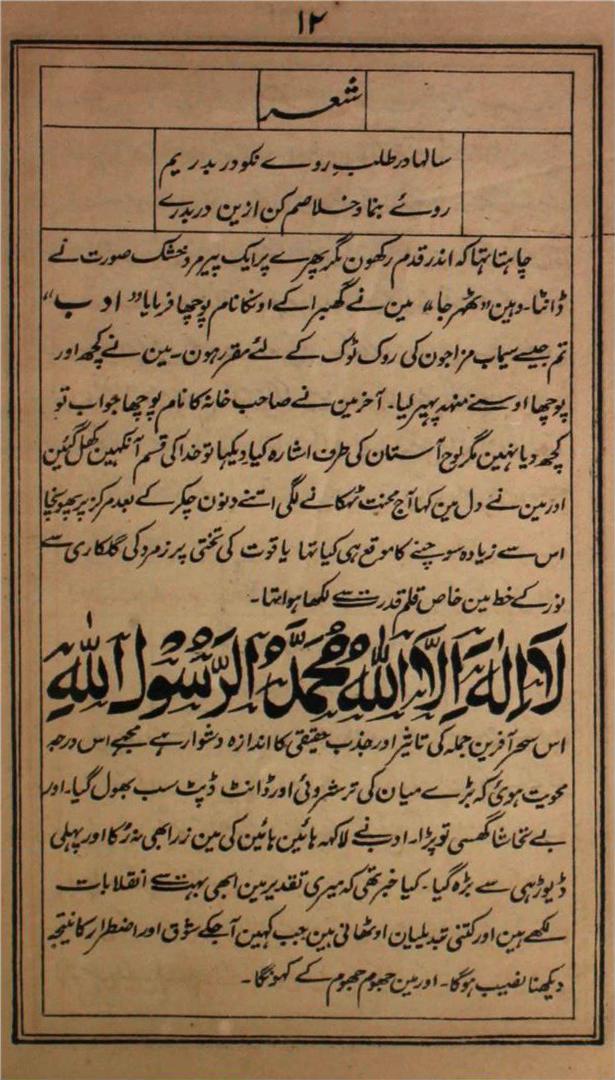 ۱۲
شعر
سالہا در طلبِ روے نکو در بدریم
روئے بنما و خلاصم کن ازین دربدرے
چاہتا تہا کہ اندر قدم رکھون مگر پہرے پر ایک پیر مرد خشک صورت نے
ڈانٹا۔ وہین "ٹھہر جا" مین نے گھبرا کے اونکا نام پوچھا فرمایا "ادب"
تم جیسے سیماب مزاجون کی روک ٹوک کے لئے مقرر ہون۔ مین نے کچھ اور
پوچھا اوسنے منہہ پہیر لیا۔ آخر مین نے صاحب خانہ کا نام پوچھا جواب تو
کچھ دیا نہین مگر لوح آستان کی طرف اشارہ کیا دیکہا تو خدا کی قسم آنکہین کھل گئین
اور مین نے دل مین کہا آج محنت ٹہکانے لگی اتنے دنون چکر کے بعد مرکز پر پہونچا
اس سے زیادہ سوچنے کا موقع ہی کیا تہا یاقوت کی تختی پر زمرد کی گلکاری سے
نور کے خط مین خاص قلم قدرت سے لکھا ہوا تہا۔
لَا اِلٰہَ اِلَّا اللّٰہُ مُحَمَّدٌ الرَّسُوْلُ اللّٰہِ
اس سحر آفرین جملہ کی تاثیر اور جذب حقیقی کا اندازہ دشوار ہے مجہے اس درجہ
محویت ہوئی کہ بڑے میان کی ترشروئی اور ڈانٹ ڈپٹ سب بھول گیا۔ اور
بے تحاشا گھسی تو پڑا۔ ادب نے لاکہہ ہائین ہائین کی مین زرا بھی نہ رُکا اور پہلی
ڈیوڑہی سے بڑہ گیا۔ کیا خبر تھی کہ میری تقدیر مین ابھی بہت سے انقلابات
لکھے ہین اور کتنی تبدیلیان اوٹھانی ہین جب کہین آجکے شوق اور اضطرار کا نتیجہ
دیکہنا نصیب ہوگا۔ اور مین جھوم جھوم کے کہونگا۔